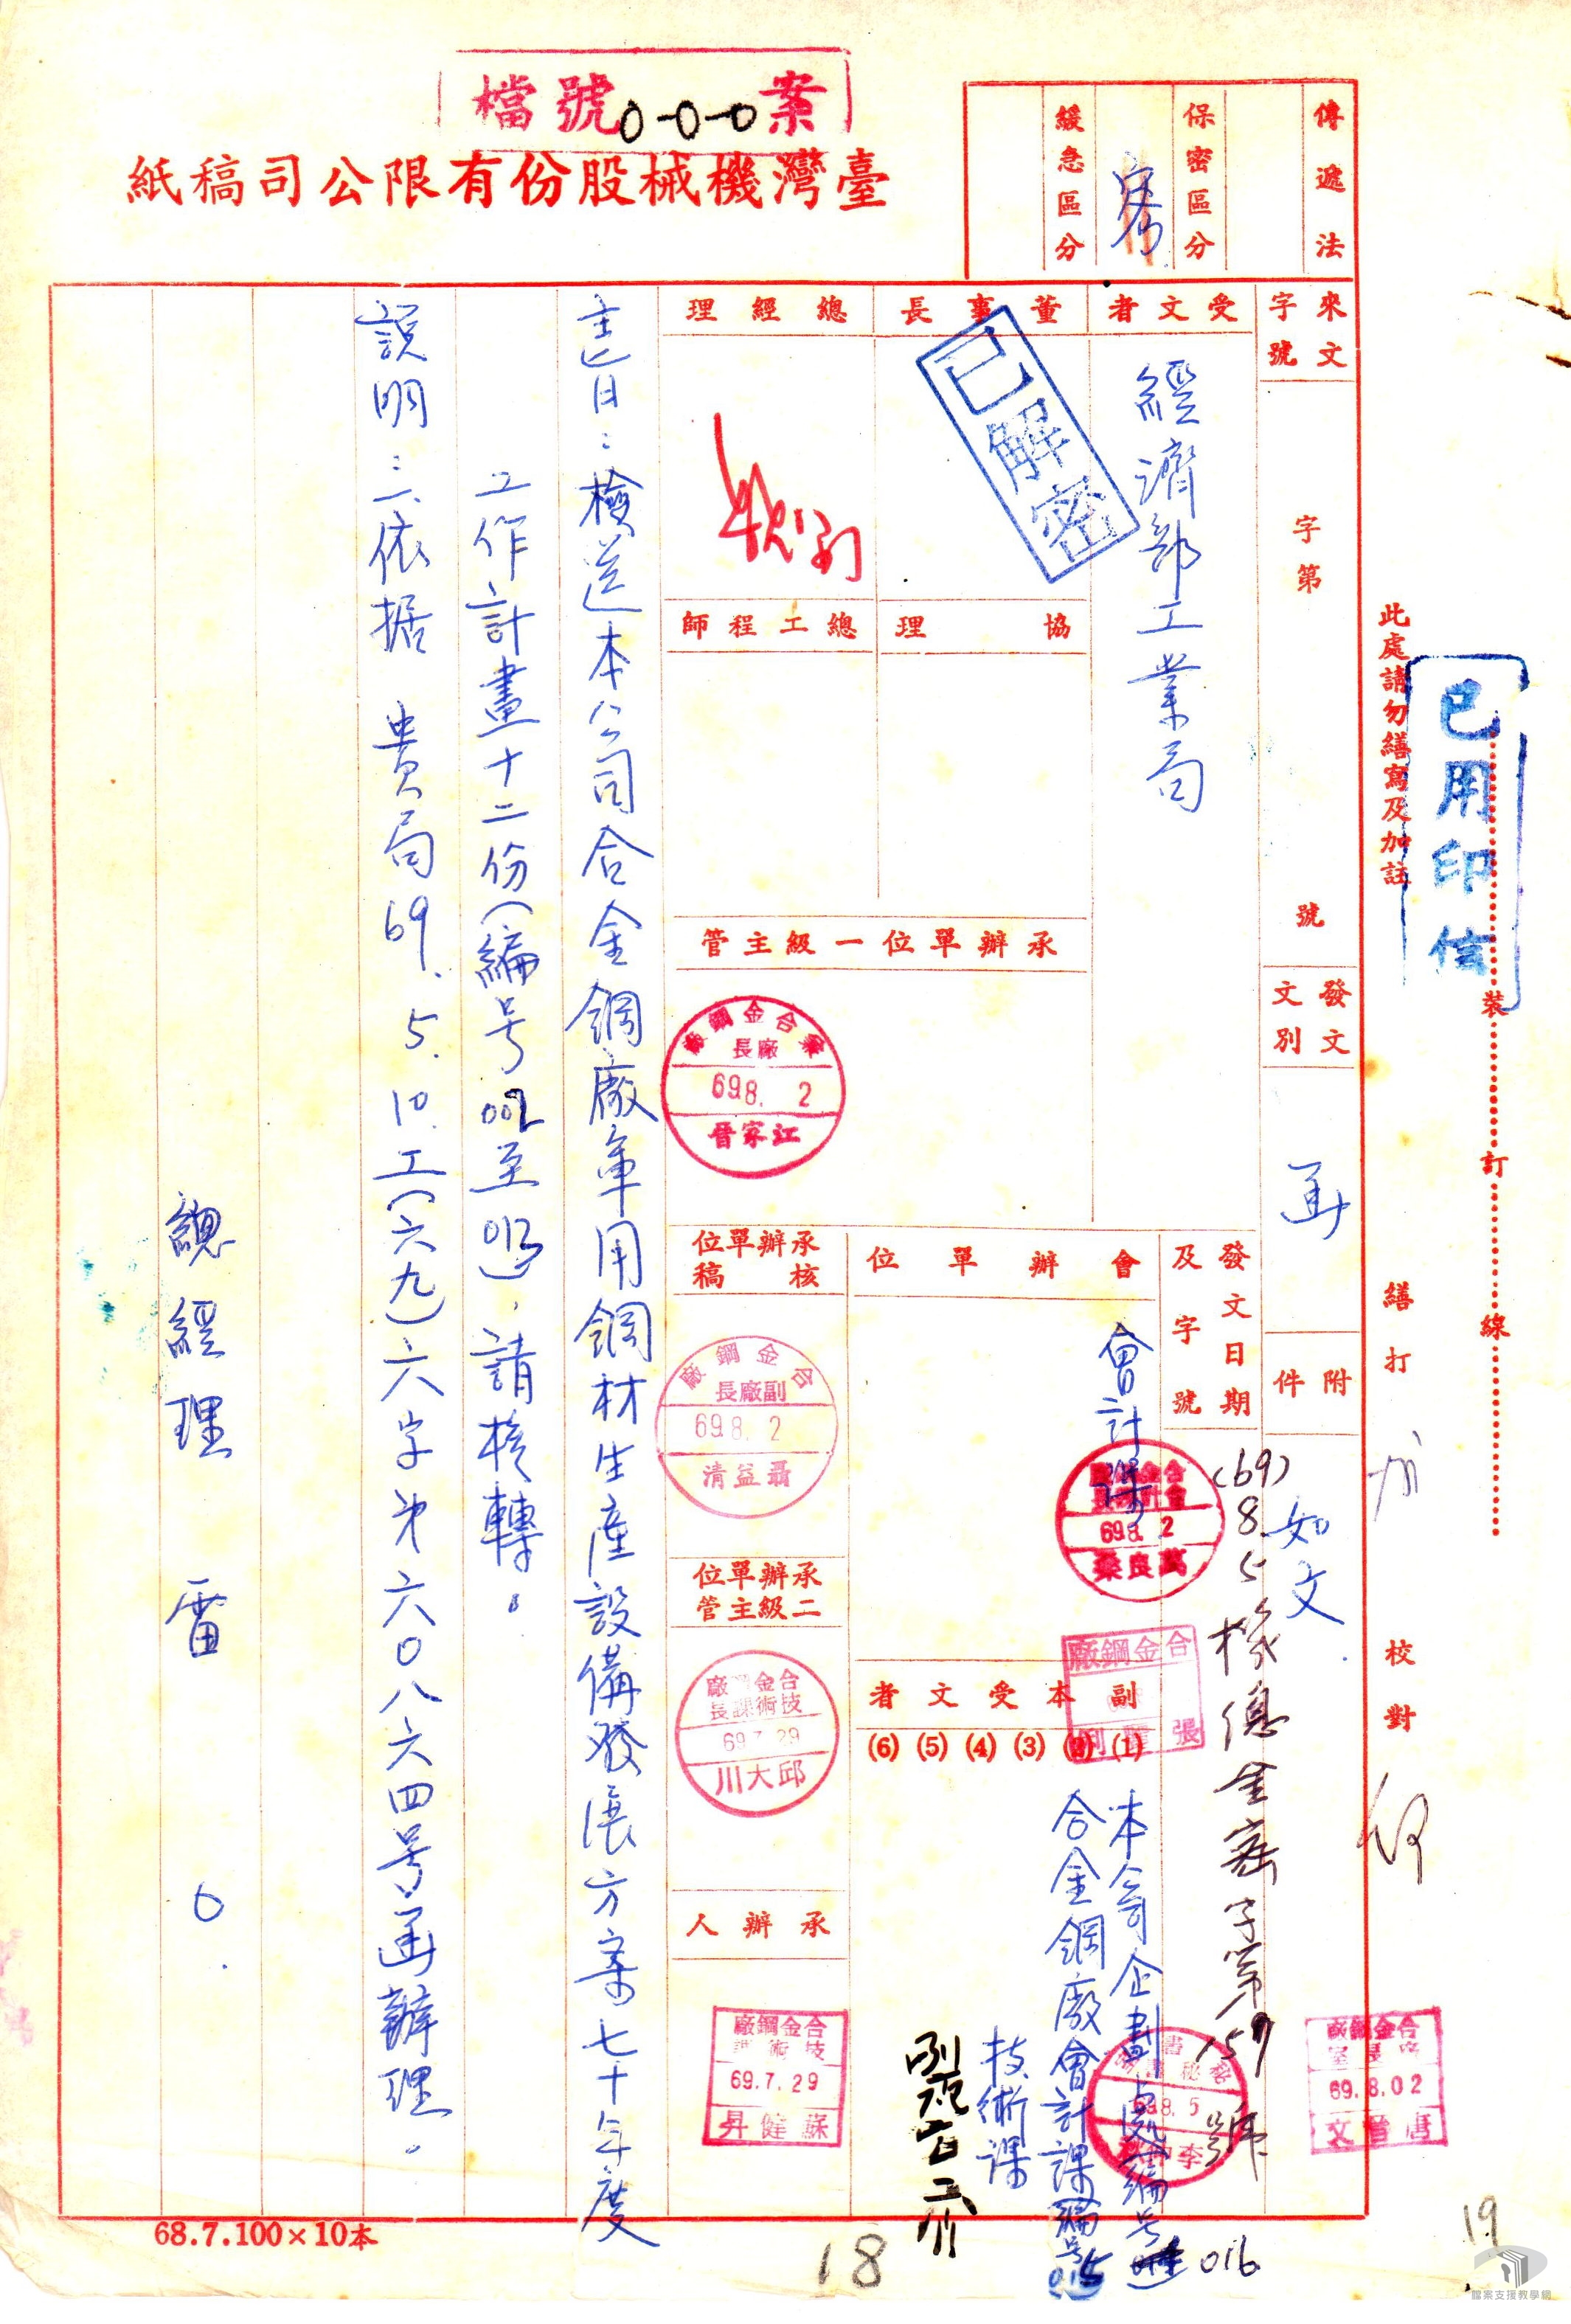 檔號0-0-0案
臺灣機械股份有限公司稿紙
傳遞法
保密區分
密
緩急區分
來文字號
字第
號
受文者
經濟部工業局
董事長
已解密
總經理
協理
總工程師
承辦單位一級主管
合金鋼廠
廠長
69.8.2
江家晉
發文文別
函
附件
如文
發文日期及字號
(69)8.5機總金密字第159號
會辦單位
會計課
69.8.2
萬良燊
承辦單位核稿
合金鋼廠
副廠長
69.8.2
聶益清
承辦單位二級主管
合金鋼廠
技術課長
69.7.29
邱大川
副本受文者
(1)
(3)
(4)
(5)
(6)
合金鋼廠
本公司企劃處編号016
合金鋼廠會計課編号015
技術課
承辦人
合金鋼廠
技術課
69.7.29
蘇健昇
69.8.5
合金鋼廠
69.8.02
唐晉文
主旨:檢送本公司合金鋼廠軍用鋼材生產設備發展方案七十年度
工作計畫十二份(編号002至013),請核轉。
説明:一、依据 貴局69.5.10.工(六九)六字第六〇八六四号函辦理。
總經理 雷 〇
此處請勿繕寫及加註
已用印信
裝
訂
線
繕打
校對
68.7.100×10本
18
19
檔案支援教學網